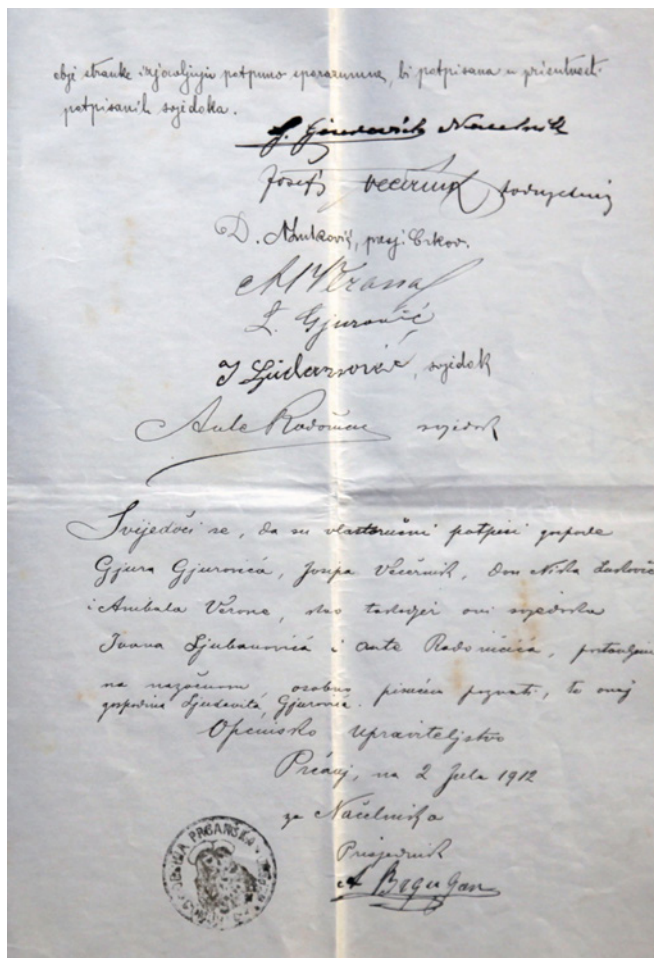 obje stranke izjavljuju potpuno sporazumne, bi potpisana u prisutnosti
potpisanih svjedoka.
Načelnik
Josef Večernik
D. N. Luković, presj. Crkov.
A Verona
L. Gjurović
svjedok
Ante Radoničić svjedok
Svijedoči se, da su vlastoručni potpisi gospode
Gjura Gjurovića, Josipa Večernik, Don Nika Luković
i Anibala Verone, kao takodjer oni svjedoka
Ivana Ljubanovića i Ante Radoničića, postavljeni
na nazočnom, osobno pisaću poznati, te onaj
gospodina Ljudevita Gjurovića.
Općinsko Upraviteljstvo
Prčanj, na 2 Jula 1912
za Načelnika
Prisjednik
A Brguljan
PRČANJSKA